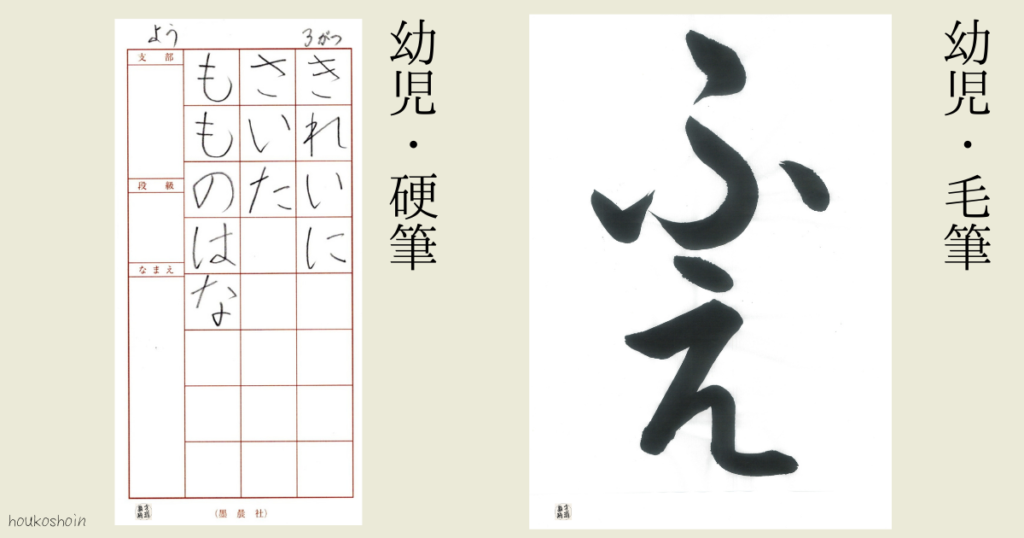 幼児・毛筆
ふえ
幼児・硬筆
よう
3がつ
きれいに
さいた
もものはな
支部
段級
なまえ
(墨晨社)
houkoshoin